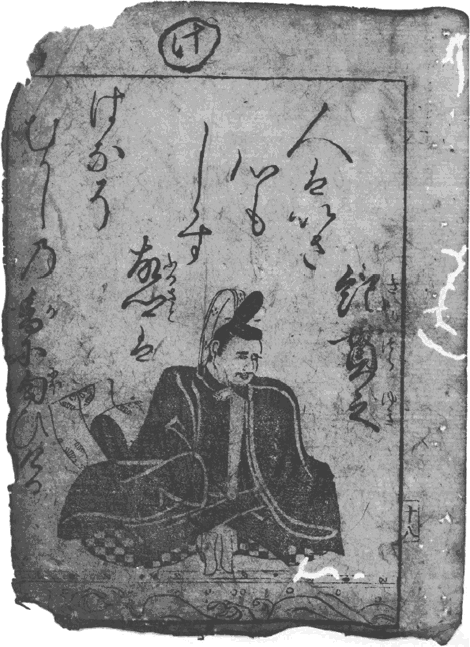 け
紀貫之
人はいさ
心も
しらす
故郷は
はなそ
むかしの香に匂ひける
十八